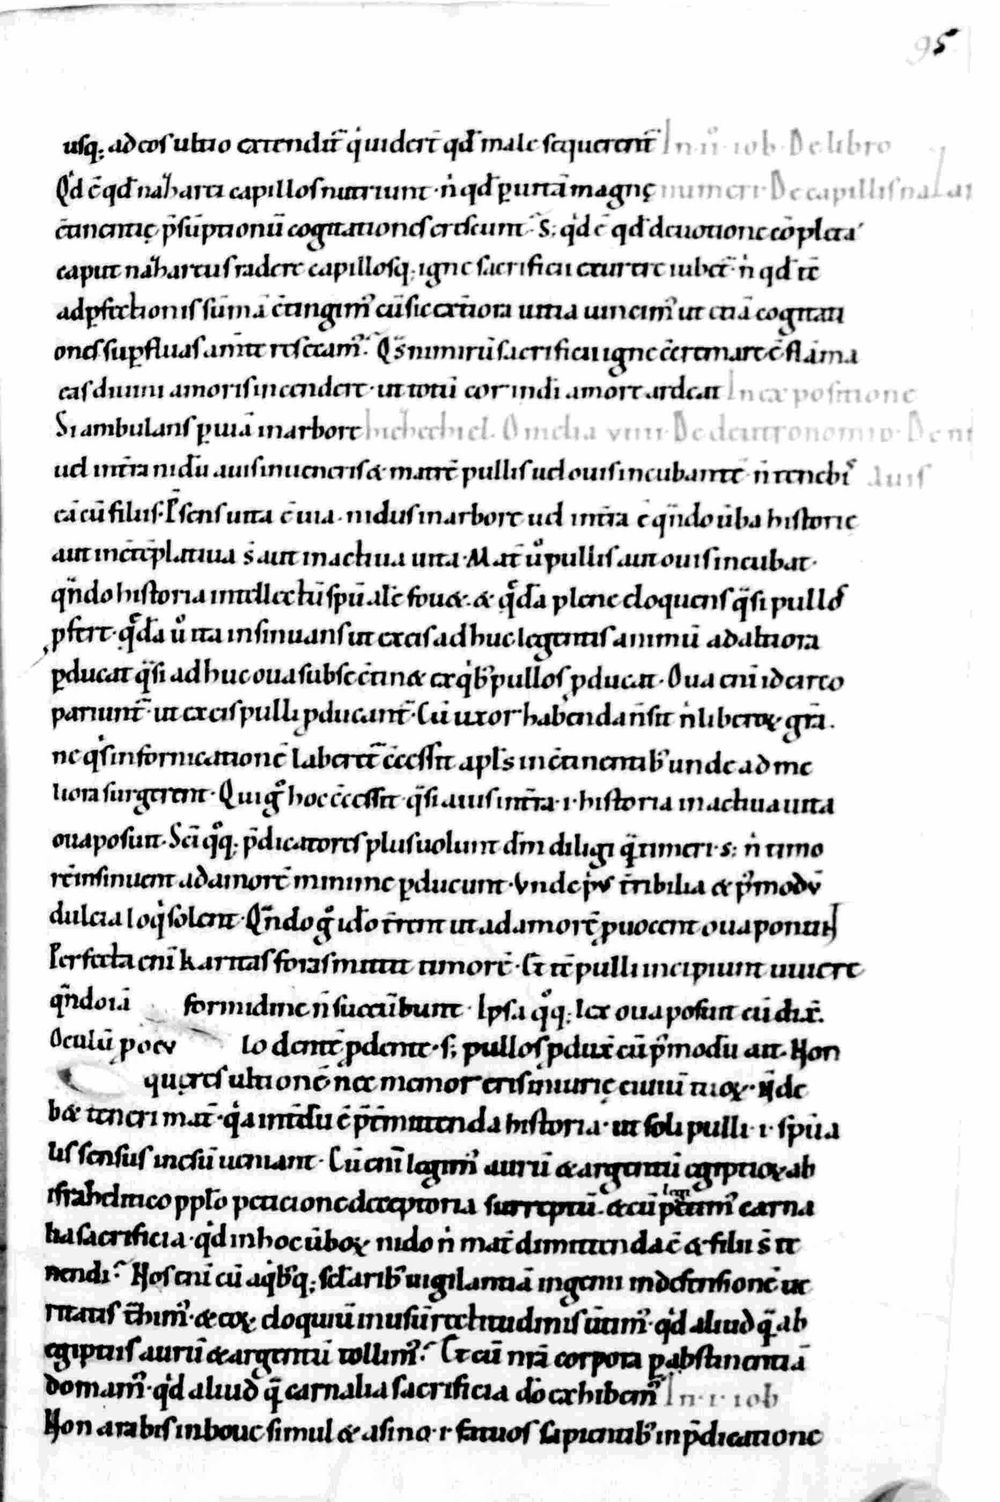 95
usq; ad eos ultio extendit̄ q̇ uidert̄ qđ male sequerent̄ In ii iob. De libro
Qđ ē qđ nazharei capillos nutriunt · n̄ qđ ꝑ uitā magnę numeri. De capillis
c̄tinentię p̄sūptionū cogitationes crescunt. S; qđ ē qđ deuotione cōpleta
caput nazhareus radere capillosq; igne sacrificii exurere iubet̄ · n̄ qđ tc̄
ad ꝑfectionis sūmā c̄tingim᷒ cū sic ext̄iora uitia uincim᷒ ut etiā cogitati
ones suꝑfluas a m̄te resecam᷒. Qs̄ nimirū sacrificii igne c̄cremare ē flāma
eas diuini amoris incendere · ut totū cor in di amore ardeat In expositione
Si ambulans ꝑ uiā in arbore hiezhechiel. Omelia viiii. De deutronomio. De
uel in t̄ra nidū auis inueneris & matrē pullis uel ouis incubantē n̄ tenebis auis
eā cū filiis. P̄sens uita ē uia · nidus in arbore uel in t̄ra ē qn̄do ūba historie
aut in c̄tēplatiua s̄ aut in actiua uita. Mat̄ ů pullis aut ouis incubat ·
qn̄do historia intellectū spūalē fouet. & q̄dā plene eloquens q̄si pullos
ꝓfert. q̄dā ů ita insinuans ut ex eis adhuc legentis animū ad altiora
ꝑducat q̄si adhuc oua subse c̄tinet ex qͥb᷒ pullos ꝓducat. Oua eni idcirco
pariunt̄ · ut ex eis pulli ꝓducant̄. Cū uxor habenda n̄ sit n̄ liberoꝝ gr̄a.
ne q̇s in fornicationē laberet̄ c̄cessit apls̄ inc̄tinentib᷒ unde ad me
liora surgerent. Qui gͦ hoc c̄cessit q̄si auis in t̄ra .i. historia in actiua uita
oua posuit. Sc̄i qͦq; p̄dicatores plus uolunt dn̄m diligi q̄ timeri. s; n̄ timo
rē insinuent ad amorē minime ꝑducunt. Vnde p̄us t̄ribilia & p̄modū
dulcia loq̇ solent. Qn̄do gͦ ideo t̄rent ut ad amorē ꝓuocent oua ponunt
Perfecta eni karitas foras mittit timorē. Et tc̄ pulli incipiunt uiuere
qn̄do iā formidine n̄ succūbunt. Ipsa qͦq; lex oua posuit cū dix̄.
Oculū ꝓ ocu lo dentē ꝓ dente. s; pullos ꝓdux̄ cū p̄modū ait. Non
quęres ultionē nec memor eris iniurię ciuiū tuoꝝ. N̄ de
bet teneri mat̄ · q̇a int̄dū ē p̄t̄mittenda historia · ut soli pulli .i. spūa
lis sensus in esū ueniant. Cū eni legim᷒ aurū & argentū egiptioꝝ ab
israhelitico pplo peticione deceptoria surreptū. & cū p̄cepta legim᷒ carna
lia sacrificia · qđ in hoc ūboꝝ nido n̄ mat̄ dimittenda ē & filii s̄ te
nendi. Hos eni cū aq̇b᷒q; sc̄larib᷒ uigilantiā ingenii in defensionē ue
ritatis t̄him᷒ · & eoꝝ eloquiū in usū rectitudinis ūtim᷒ · qđ aliud q̄ ab
egiptiis aurū & argentū tollim᷒. Et cū nr̄a corpora ꝑ abstinentiā
domam᷒ · qđ aliud q̄ carnalia sacrificia do exhibem᷒ In .i. iob
Non arabis in boue simul & asino .i. fatuos sapientib᷒ in p̄dicatione